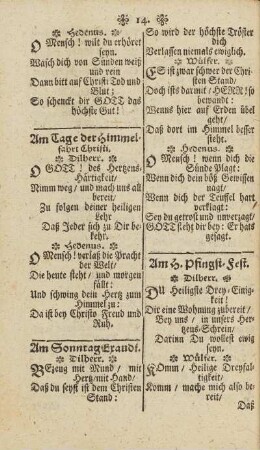 14.
Hedenus.
O Mensch! wilt du erhöret
seyn.
Wasch dich von Sünden weiß
und rein
Dann bitt auf Christi Tod und
Blut;
So schenckt dir GOTT das
höchste Gut!
Am Tage der Himmel-
fahrt Christi.
Dilherr.
O GOTT! des Hertzens
Härtigkeit/
Nimm weg/ und mach uns all
bereit/
Zu folgen deiner heiligen
Lehr
Daß Jeder sich zu Dir be-
kehr.
Hedenus.
O Mensch! verlaß die Pracht
der Welt/
Die heute steht/ und morgen
fällt:
Und schwing dein Hertz zum
Himmel zu:
Da ist bey Christo Freud und
Ruh.
Am Sonntag Exaudi.
Dilherr.
Bezeug mit Mund/ mit
Hertz/ mit Hand/
Daß du seyst in dem Christen
Stand:
So wird der höchste Tröster
dich
Verlassen niemals ewiglich.
Wülfer.
Es ist zwar schwer der Chri-
sten Stand/
Doch ists darmit/ HERR! so
bewandt:
Wenns hier auf Erden übel
geht/
Daß dort im Himmel besser
steht.
Hedenus.
O Mensch! wenn dich die
Sünde Plagt:
Wenn dich dein böß Gewissen
nagt/
Wenn dich der Teuffel hart
verklagt:
Sey du getrost und unverzagt/
GOTT steht dir bey: Er hats
gesagt.
Am H. Pfingst-Fest.
Dilherr.
DU Heiligste Drey-Einig-
keit!
Dir eine Wohnung zubereit/
Bey uns/ in unsers Her-
tzens-Schrein/
Darinn Du wollest ewig
seyn.
Wülfer.
Komm/ Heilige Dreyfal-
tigkeit/
Komm/ mache mich also be-
reit/
Daß